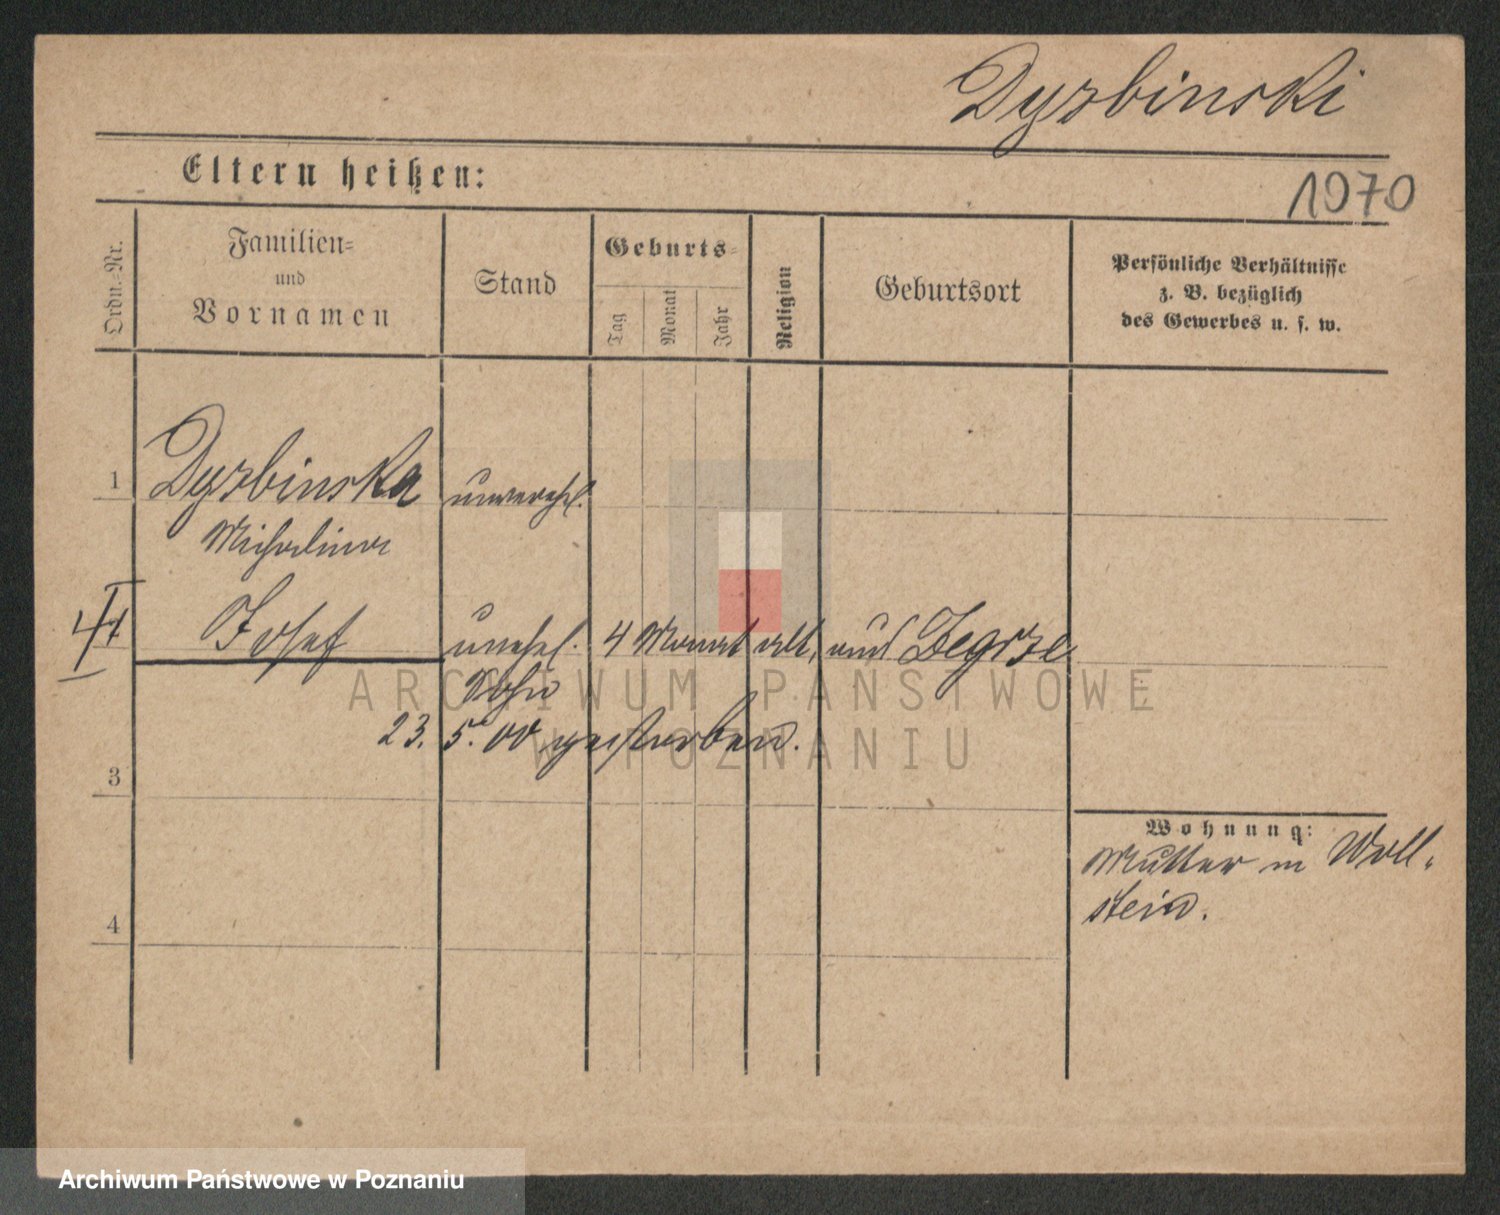 Dyrbinski
Eltern heißen:
1970
Ordn.-Nr.
Familien-
und
Vornamen
Stand
Geburts-
Tag
Monat
Jahr
Religion
Geburtsort
Persönliche Verhältnisse
z. B. bezüglich
des Gewerbes u. s. w.
1
Dyrbinska
unverehl.
Michalina
Josef
unehel. 4 Monat alt, aus Zegrze
ARCHIWUM PAŃSTWOWE
Sohn
W POZNANIU
23. 5. 00 gestorben.
3
Wohnung:
Mutter in Woll-
stein.
4
Archiwum Państwowe w Poznaniu